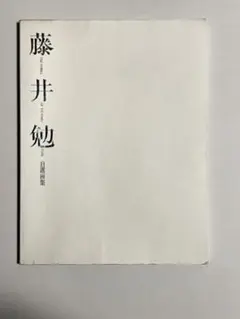 藤井勉
自選画集